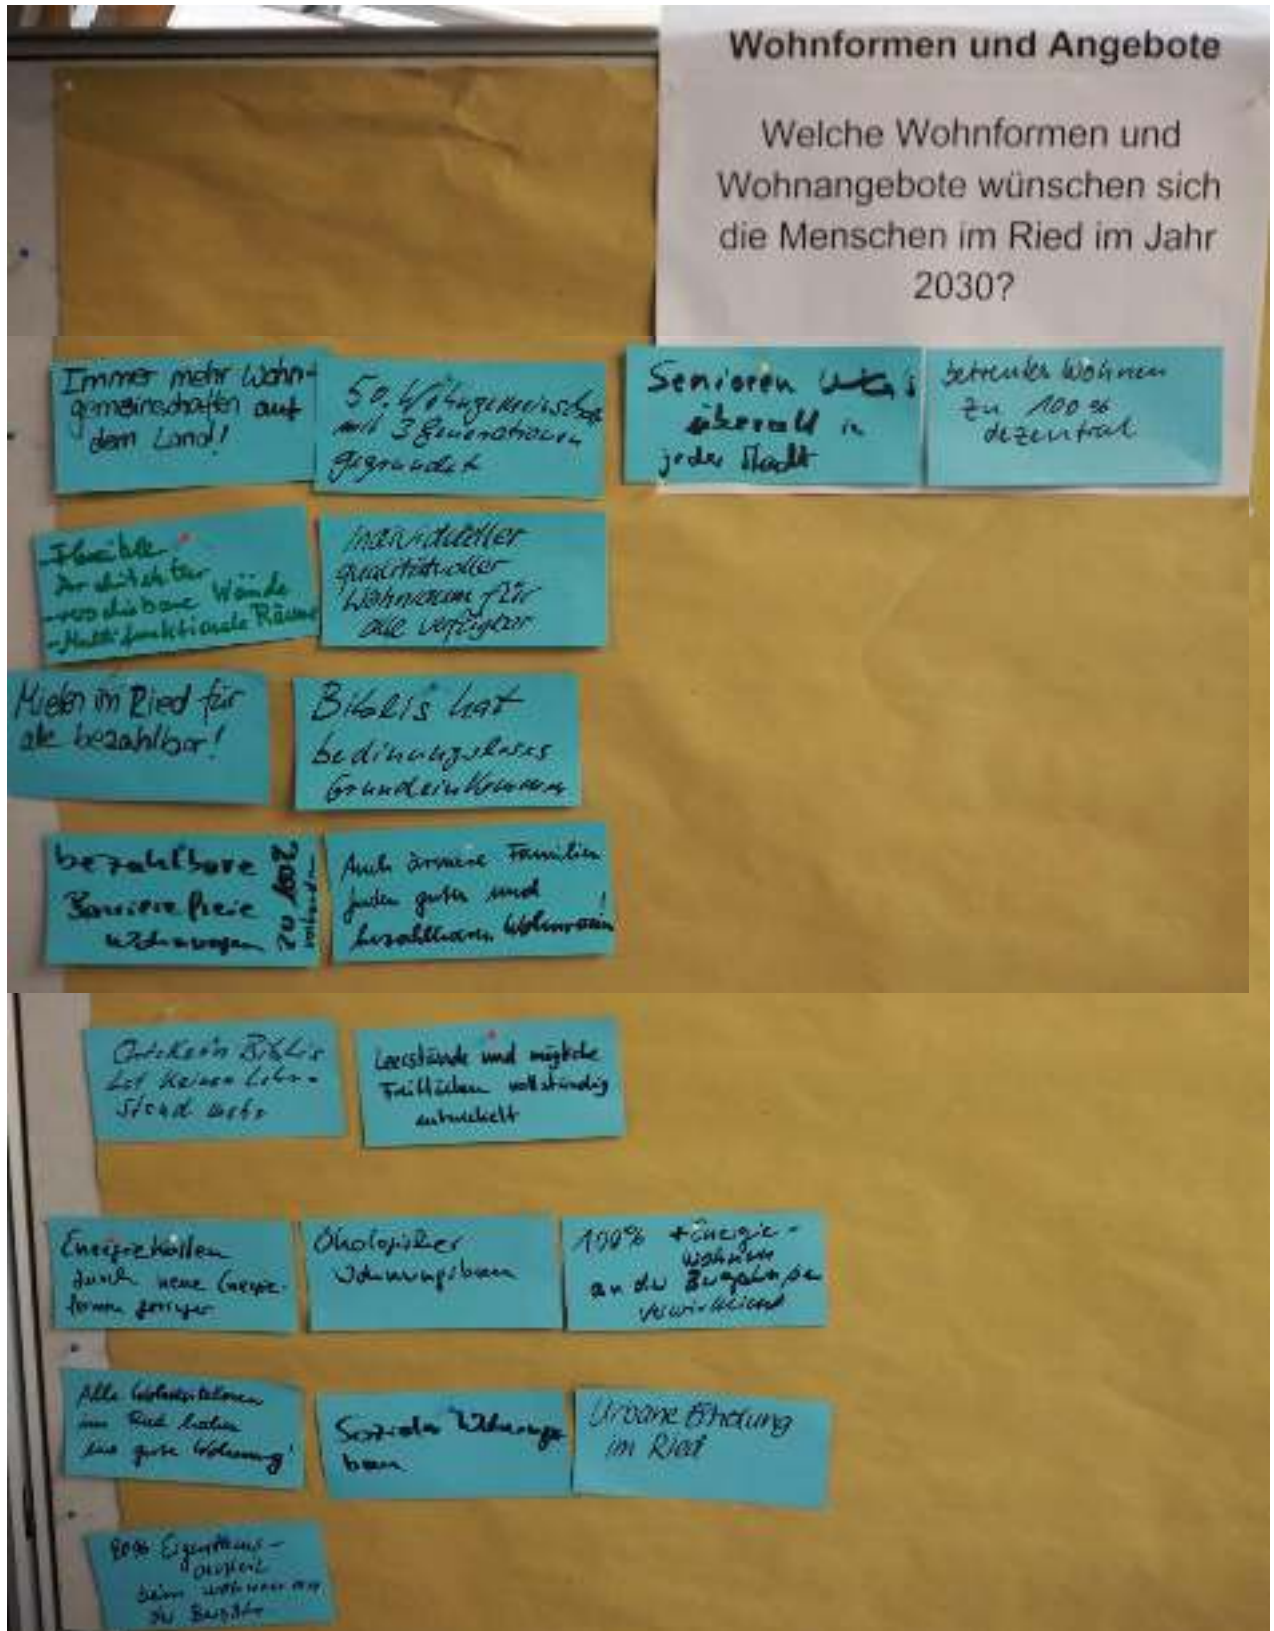 Wohnformen und Angebote
Welche Wohnformen und
Wohnangebote wünschen sich
die Menschen im Ried im Jahr
2030?
Immer mehr Wohn-
gemeinschaften auf
dem Land!
50 Wohngemeinschaft
mit 3 Generationen
gegründet
Senioren WG's
überall in
jeder Stadt
betreutes Wohnen
zu 100%
dezentral
- Flexible
Architektur
- verschiebbare Wände
- Multifunktionale Räume
Individueller
qualitätvoller
Wohnraum für
alle verfügbar
Mieten im Ried für
alle bezahlbar!
Biblis hat
bedinungsloses
Grundeinkommen
bezahlbare
Barrierefreie
Wohnungen
zu 100%
vorhanden
Auch ärmere Familien
finden guten und
bezahlbaren Wohnraum!
Ortskern Biblis
hat keinen Leer-
stand mehr
Leerstände und mögliche
Freiflächen vollständig
entwickelt
Energiekosten
durch neue Energie-
formen geringer
Ökologischer
Wohnungsbau
100% +Energie-
wohnen
an der
verwirklicht
Alle
im Ried haben
eine gute Wohnung!
Sozialer Wohnungs
bau
Urbane Erholung
im Ried
80% Eigentums-
beim wohnen an
der